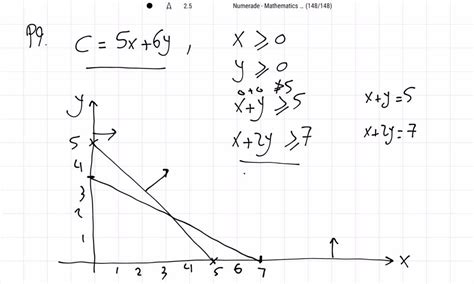 2.5 Numerade - Mathematics ... (148/148)
P9. C = 5x+6y ,
x ≥ 0
y ≥ 0
0+0 ≱5
x+y ≥ 5
x+2y ≥ 7
x+y = 5
x+2y = 7
y
5
4
3
2
1
1 2 3 4 5 6 7
x